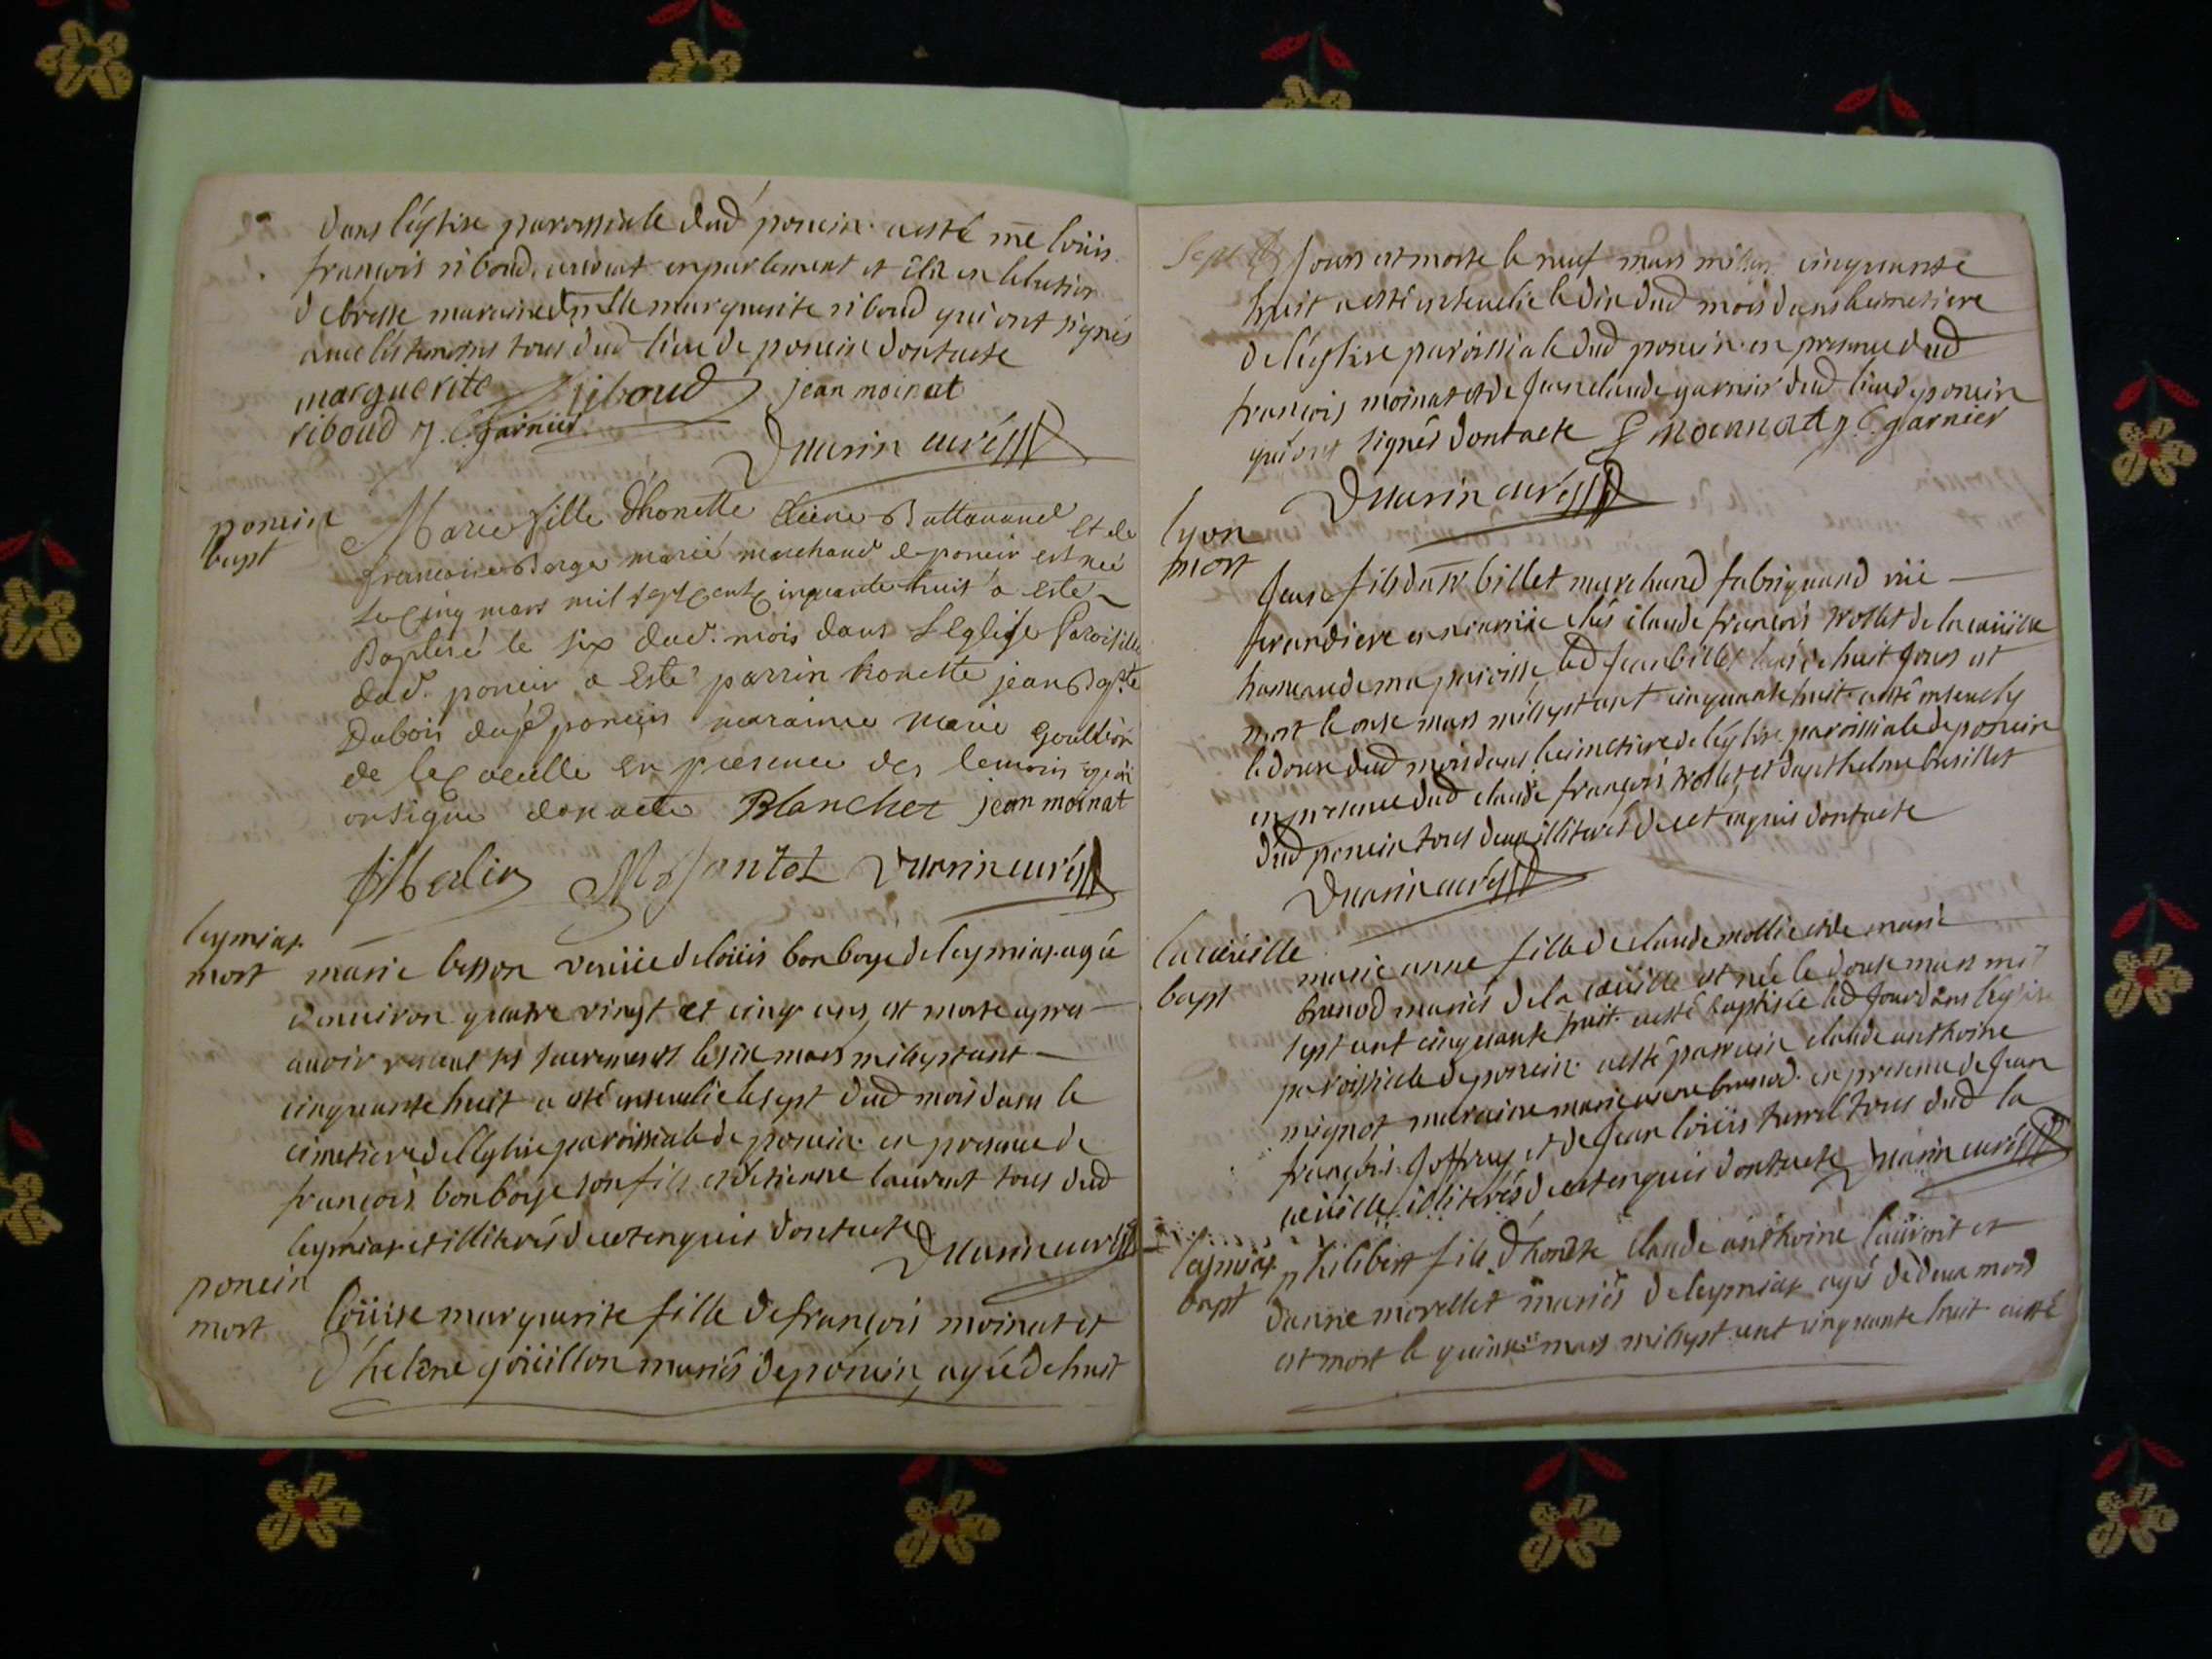 dans l'église paroissiale dud poncin. a esté mre loüis
françois riboud, avocat en parlement et élu en l'election
de bresse maraine dlle marguerite riboud qui ont signés
avec les temoins tous dud lieu de poncin dont acte
marguerite Riboud jean moinat
riboud J. C. garnier
Duarin curé
poncin
bapt
Marie fille d'honette Battanand et de
francoise Berger marié marchand de poncin est née
le cinq mars mil sept cent cinquante huit a esté
Baptisé le six dud. mois dans l'Eglise Paroissille
dud. poncin a esté parrin honette jean Bapte
Dubois dud poncin maraine marie goullion
de le ceuille en presence des temoins qui
on signé don acte Blanchet jean moinat
Merlin Montet Duarin curé
leymiat
mort
marie besson veuüe de loüis bonboyé de leymiat agée
d'environ quatre vingt et cinq ans, est morte apres
avoir receut ses sacrements le six mars mil sept cent
cinquante huit a esté ensevelie le sept dud mois dans le
cimetiere de l'église paroissiale de poncin. en presence de
françois bonboyé son fils et d'etienne laurent tous dud
leymiat et illiterés de ce enquis dont acte
Duarin curé
poncin
mort
loüise marguerite fille de françois moinat et
d'helene goüillon mariés de poncin, agée de huit
Sept
Jours est morte le neuf mars cinquante
huit a esté ensevelie le dix dud mois dans le cimetiere
de l'église paroissiale dud poncin. en presence dud
françois moinat et de Jean claude garnier dud lieu de poncin
qui ont signés dont acte F moinnat J. C. garnier
Duarin curé
lyon
mort
Jean fils du sr billet marchand fabriquand rüe
ferandiere en nourrice chés claude françois mollet de la cuüille
hameau de ma paroisse led Jean billet agé de huit Jours est
mort le onze mars mil sept cent cinquante huit. a esté ensevely
le douse dud mois dans le cimetiere de l'église paroissiale de poncin
en presence dud claude françois mollet, et d'anthelme brisillet
dud poncin tous deux illiterés de ce enquis dont acte
Duarin curé
la cuëille
bapt
marie anne fille de claude mollie et de marie
brunod mariés de la cuëille est née le douse mars mil
sept cent cinquante huit. a esté baptisée led Jour dans l'église
paroissiale de poncin. a esté parrain claude anthoine
mignot maraine marie anne brunod. en presence de Jean
françois Joffray et de Jean loüis tarrel tous dud la
cuëille, illiterés de ce enquis dont acte Duarin curé
leymiat
bapt
philibert fils d'honete claude anthoine laurent et
d'anne morellet mariés de leymiat agé de deux mois
est mort le quinse mars mil sept cent cinquante huit a esté